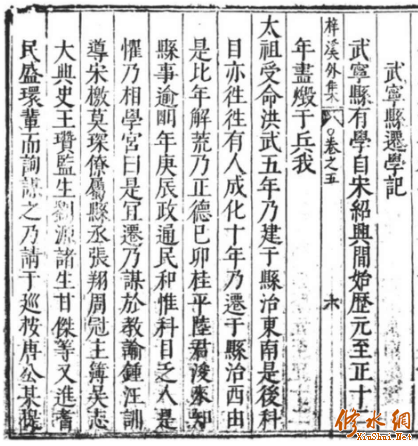 武寧縣遷學記
武寧縣有學自宋紹興間始歷元至正十
梓溪外集 卷之五
木
年盡燬于兵我
太祖受命洪武五年乃建于縣治東南是後科
目亦徃徃有人成化十年乃遷于縣治西由
是比年解荒乃正德己卯桂平陸君浚來知
縣事逾明年庚辰政通民和惟科目乏人是
懼乃相學宮曰是宜遷乃謀於教諭鍾汪訓
導宋檄莫琛僚屬縣丞張翔周冠主簿吴志
大典史王瓚監生劉源諸生甘傑等又進耆
民盛環輩而詢謀之乃請于廵按唐公某提
修水網
XiuShui.Net